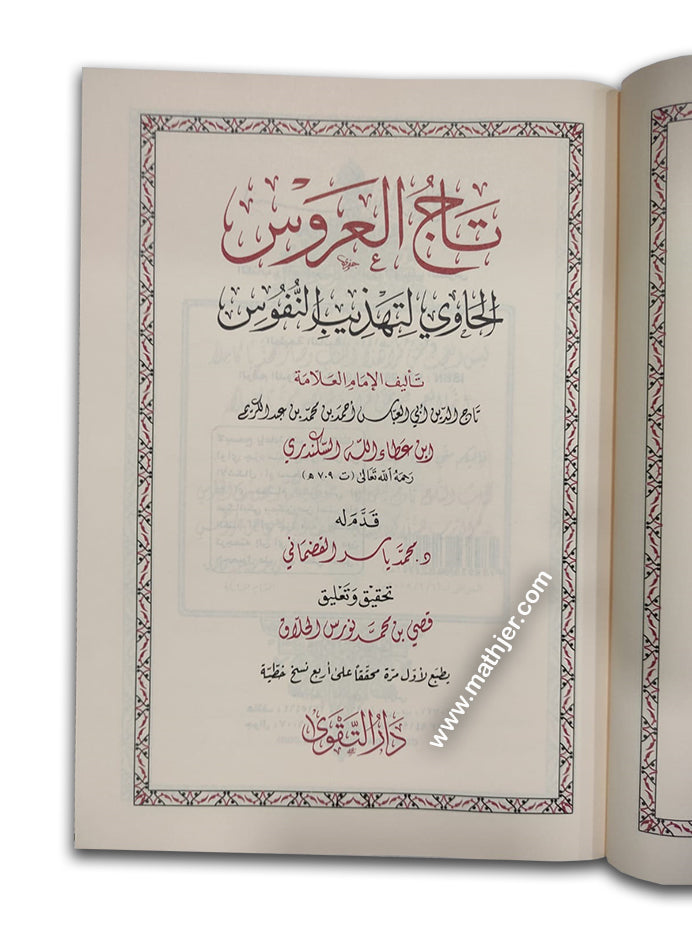 تَاجُ العَرُوسِ
الحَاوِي لِتَهْذِيبِ النُّفُوسِ
تَأليف الإمَام العَلّامَة
تاج الدين أبي العباس أحمد بن محمد بن عبد الكريم
ابن عطاء الله السكندري
رَحِمَهُ اللهُ تَعَالَىٰ (ت ٧٠٩ هـ)
قَدَّمَ لَه
د. محمد ياسر القضماني
تحقيق وَتَعليق
قصي بن محمد نورس الحلاق
يطبع لأوّل مَرّة محقّقاً على أربع نسَخ خطّيّة
دَارُ التَّقْوَىٰ
www.mathjer.com